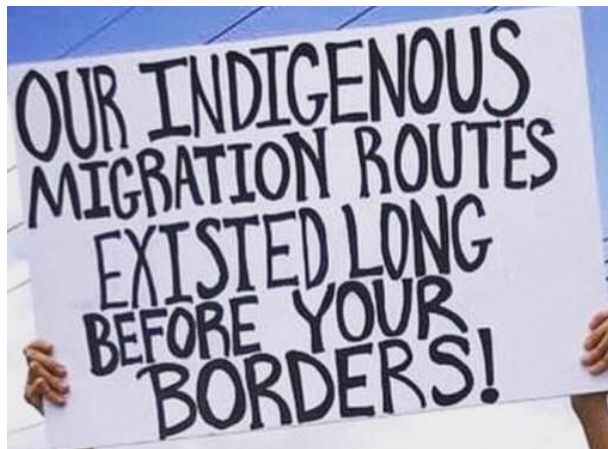 OUR INDIGENOUS
MIGRATION ROUTES
EXISTED LONG
BEFORE YOUR
BORDERS!